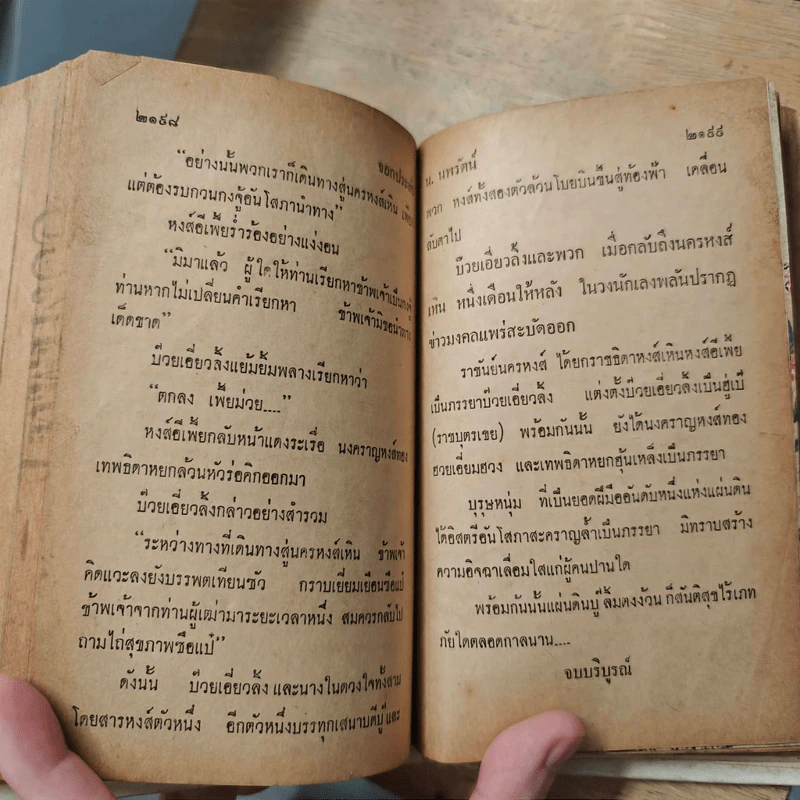 ๒๑๙๘
“อย่างนั้นพวกเราก็เดินทางสู่นครหงส์เหิน
แต่ต้องรบกวนกงจู้อันโสภานำทาง”
หงส์อีเพ้ยร่ำร้องอย่างแง่งอน
“มิมาแล้ว ผู้ใดให้ท่านเรียกหาข้าพเจ้าเป็นกงจู้
ท่านหากไม่เปลี่ยนคำเรียกหา ข้าพเจ้ามิขอนำทาง
เด็ดขาด”
บ๊วยเอี่ยวลั้งแย้มยิ้มพลางเรียกหาว่า
“ตกลง เพ้ยม่วย....”
หงส์อีเพ้ยกลับหน้าแดงระเรื่อ นงคราญหงส์ทอง
เทพธิดาหยกล้วนหัวร่อคิกออกมา
บ๊วยเอี่ยวลั้งกล่าวอย่างสำรวม
“ระหว่างทางที่เดินทางสู่นครหงส์เหิน ข้าพเจ้า
คิดแวะลงยังบรรพตเทียนซัว กราบเยี่ยมเยือนซือแป๋
ข้าพเจ้าจากท่านผู้เฒ่ามาระยะเวลาหนึ่ง สมควรกลับไป
ถามไถ่สุขภาพซือแป๋”
ดังนั้น บ๊วยเอี่ยวลั้ง และนางในดวงใจทั้งสาม
โดยสารหงส์ตัวหนึ่ง อีกตัวหนึ่งบรรทุกเสนาบดีบู๊และ
น. นพรัตน์
๒๑๙๙
พวก หงส์ทั้งสองตัวล้วนโบยบินขึ้นสู่ท้องฟ้า เคลื่อน
ลับตาไป
บ๊วยเอี่ยวลั้งและพวก เมื่อกลับถึงนครหงส์
เหิน หนึ่งเดือนให้หลัง ในวงนักเลงพลันปรากฏ
ข่าวมงคลแพร่สะบัดออก
ราชันย์นครหงส์ ได้ยกราชธิดาหงส์เหินหงส์อีเพ้ย
เป็นภรรยาบ๊วยเอี่ยวลั้ง แต่งตั้งบ๊วยเอี่ยวลั้งเป็นฮู่เบ๊
(ราชบุตรเขย) พร้อมกันนั้น ยังได้นงคราญหงส์ทอง
ฮวยเอี่ยมฮวง และเทพธิดาหยกฮุ้นเหล็งเป็นภรรยา
บุรุษหนุ่ม ที่เป็นยอดฝีมืออันดับหนึ่งแห่งแผ่นดิน
ได้อิสตรีอันโสภาสะคราญล้ำเป็นภรรยา มิทราบสร้าง
ความอิจฉาเลื่อมใสแก่ผู้คนปานใด
พร้อมกันนั้นแผ่นดินบู๊ลิ้มตงง้วน ก็สันติสุขไร้เภท
ภัยใดตลอดกาลนาน....
จบบริบูรณ์